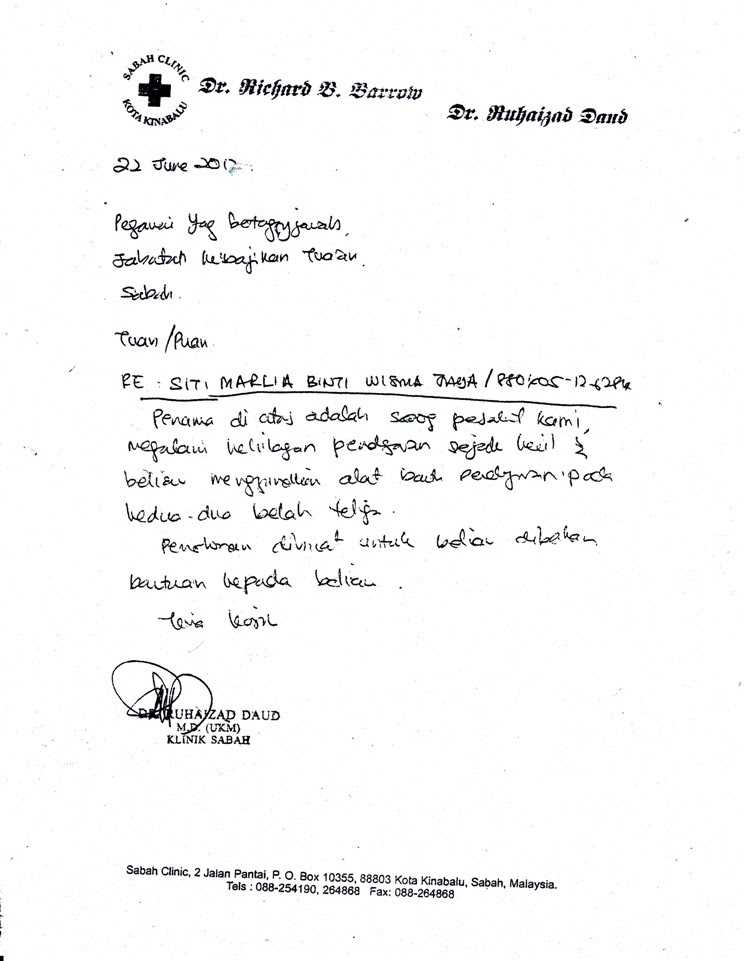 SABAH CLINIC
KOTA KINABALU
Dr. Richard B. Barrow
Dr. Ruhaizad Daud
22 June 2012
Pegawai Yag
Jabatan Kebajikan Tuaran,
Sabah.
Tuan/Puan
RE : SITI MARLIA BINTI WISMA
Penama di atas adalah seorg pesakit kami,
megalami kehilagan pendgaran sejak kecil &
beliau menggunakan alat bantu pendgaran pada
kedua-dua belah teliga.
untuk beliau
bantuan kepada beliau.
Teria kasih
DR. RUHAIZAD DAUD
M.D. (UKM)
KLINIK SABAH
Sabah Clinic, 2 Jalan Pantai, P. O. Box 10355, 88803 Kota Kinabalu, Sabah, Malaysia.
Tels : 088-254190, 264868 Fax: 088-264868